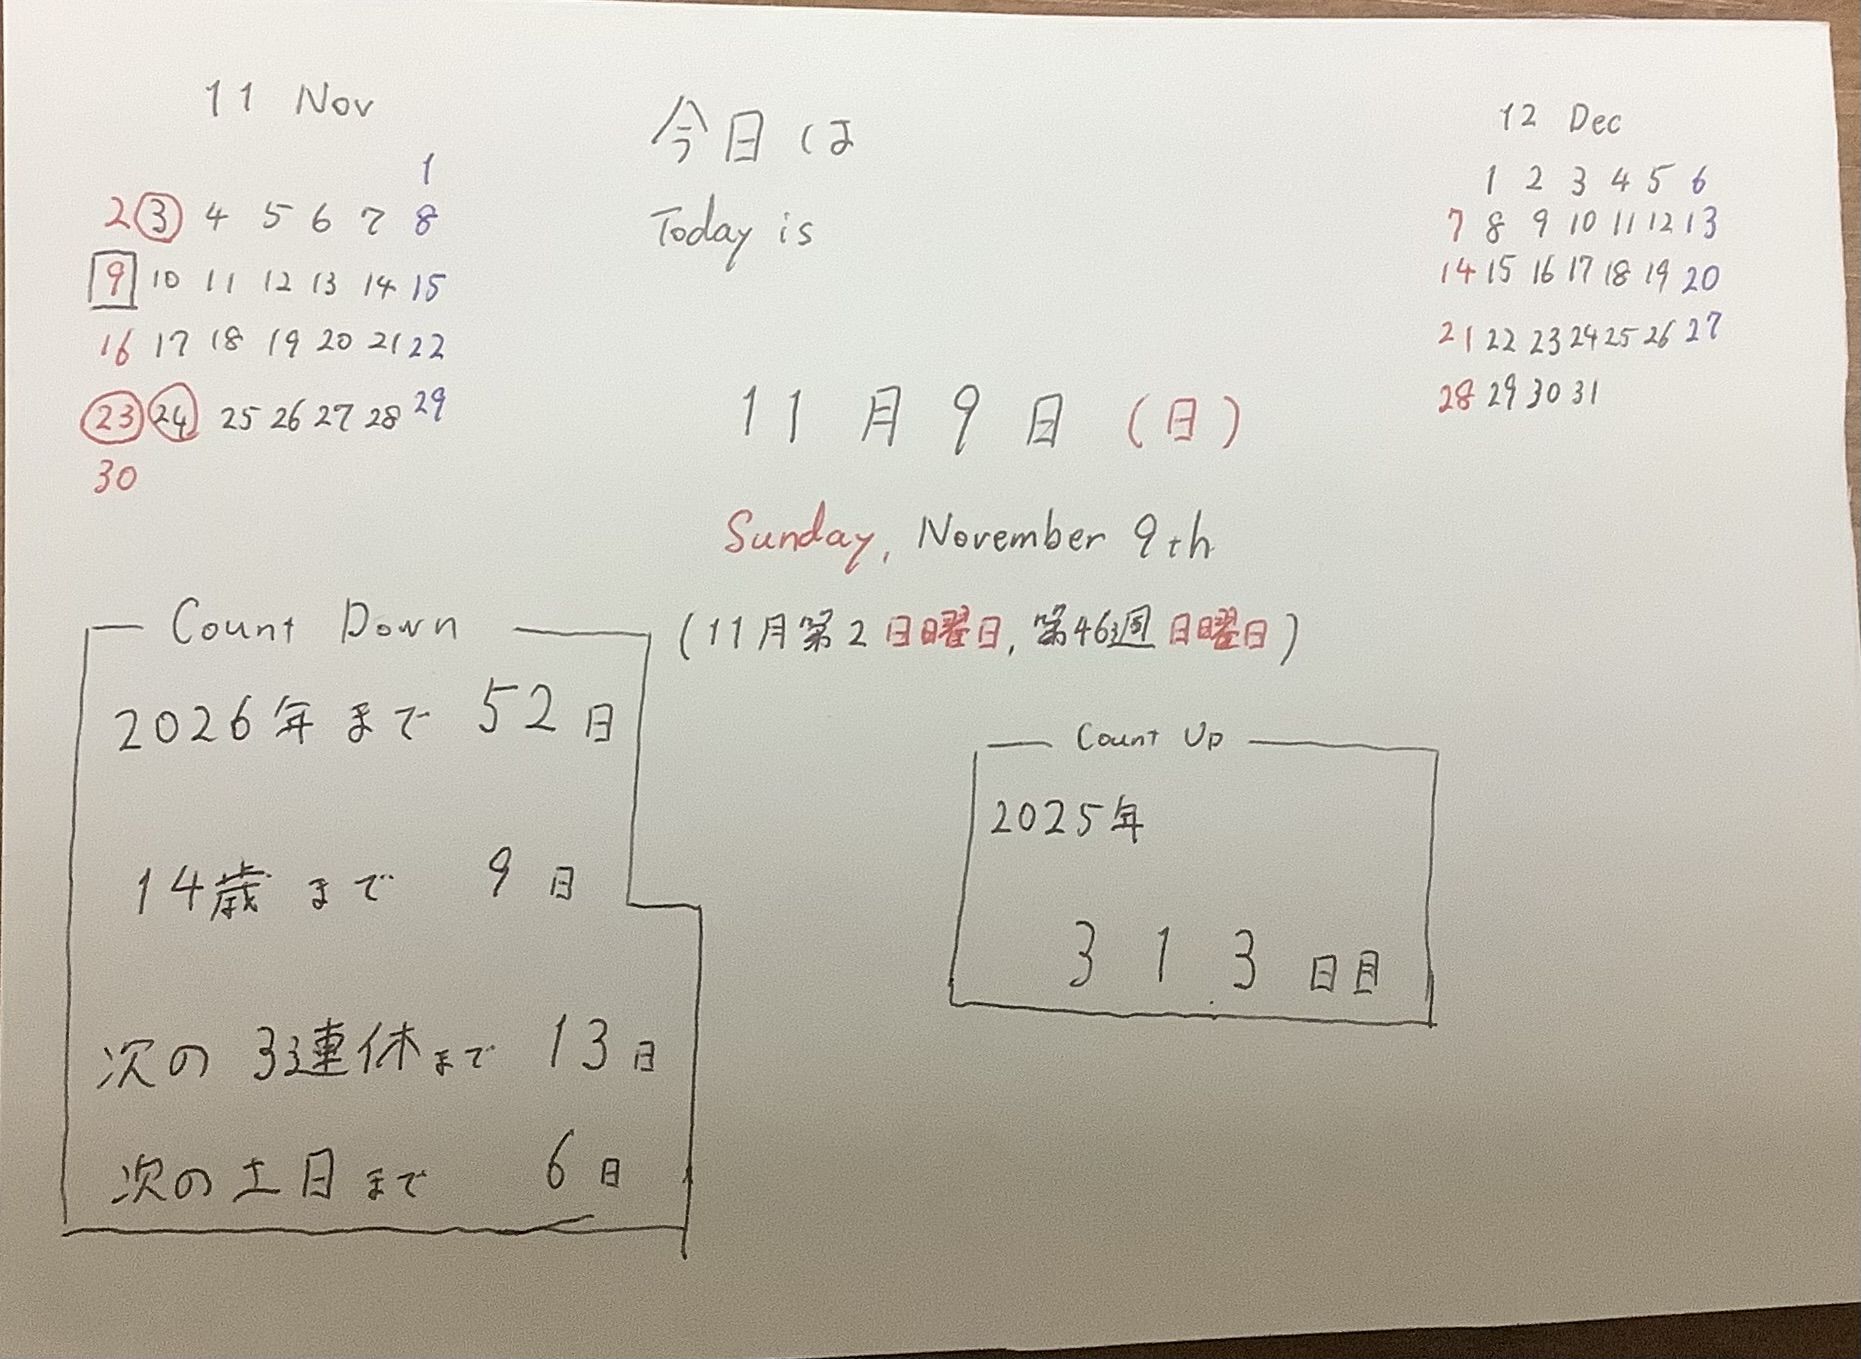 11 Nov
1
2 3 4 5 6 7 8
9 10 11 12 13 14 15
16 17 18 19 20 21 22
23 24 25 26 27 28 29
30
今日は
Today is
12 Dec
1 2 3 4 5 6
7 8 9 10 11 12 13
14 15 16 17 18 19 20
21 22 23 24 25 26 27
28 29 30 31
11月9日(日)
Sunday, November 9th
(11月第2日曜日, 第46週日曜日)
Count Down
2026年まで 52日
14歳まで 9日
次の3連休まで 13日
次の土日まで 6日
Count Up
2025年
313日目